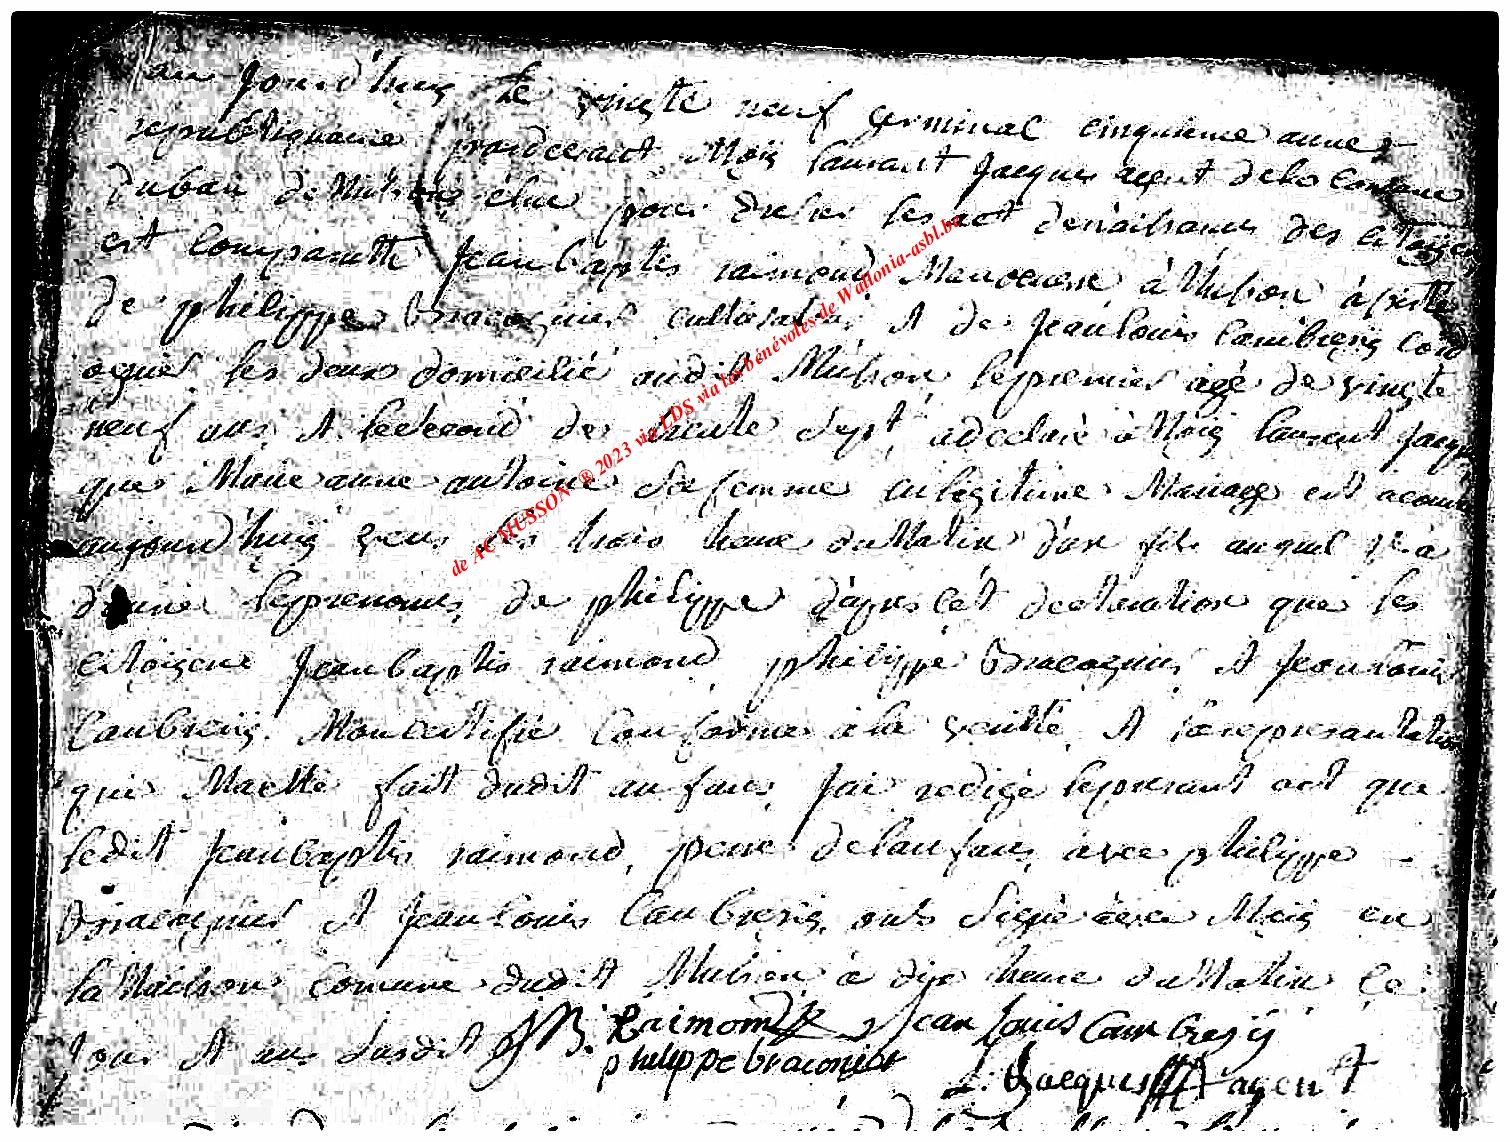 au Jourd'huy le vingte neuf germinal cinquieme annee
republiquaine pardevant Moy laurant Jacques agent de la Comune
du ban de Musson élue pour dresser les act de naissance des citoyen
est comparutte Jean baptis raimond Maneuvre à Musson assiste
de philippe Braconier cultivateur et de Jean louis Cambresy cord
onier les deux domicilié audit Musson le premier agé de vingte
neuf ans et le second de trente sept, a declaré à Moy laurent Jacque
que Marie anne antoine sa femme en legitime Mariage est acouché
aujourd'huy vers les trois heure du Matin d'un fils auquel il a
donné le prenoms de philippe d'apres cet declaration que les
citoyene Jean baptis raimond philippe Braconier et Jean louis
Cambresy. Mon certifié Conforme à la verité et la representation
qui Matte fait dudit anfans, J'ai redigé le present act que
ledit Jean baptis raimond, pere de lanfans avec philippe
Braconier et Jean louis Cambresy, ont signé avec Moy en
la Maison Comune dudit Musson à dix heure du Matin le
Jour et an susdit JB. Raimond Jean louis Cambresÿ
philippe braconier
L. Jacques agent
de AC MUSSON ® 2023 via LDS via les bénévoles de Wallonia-asbl.be